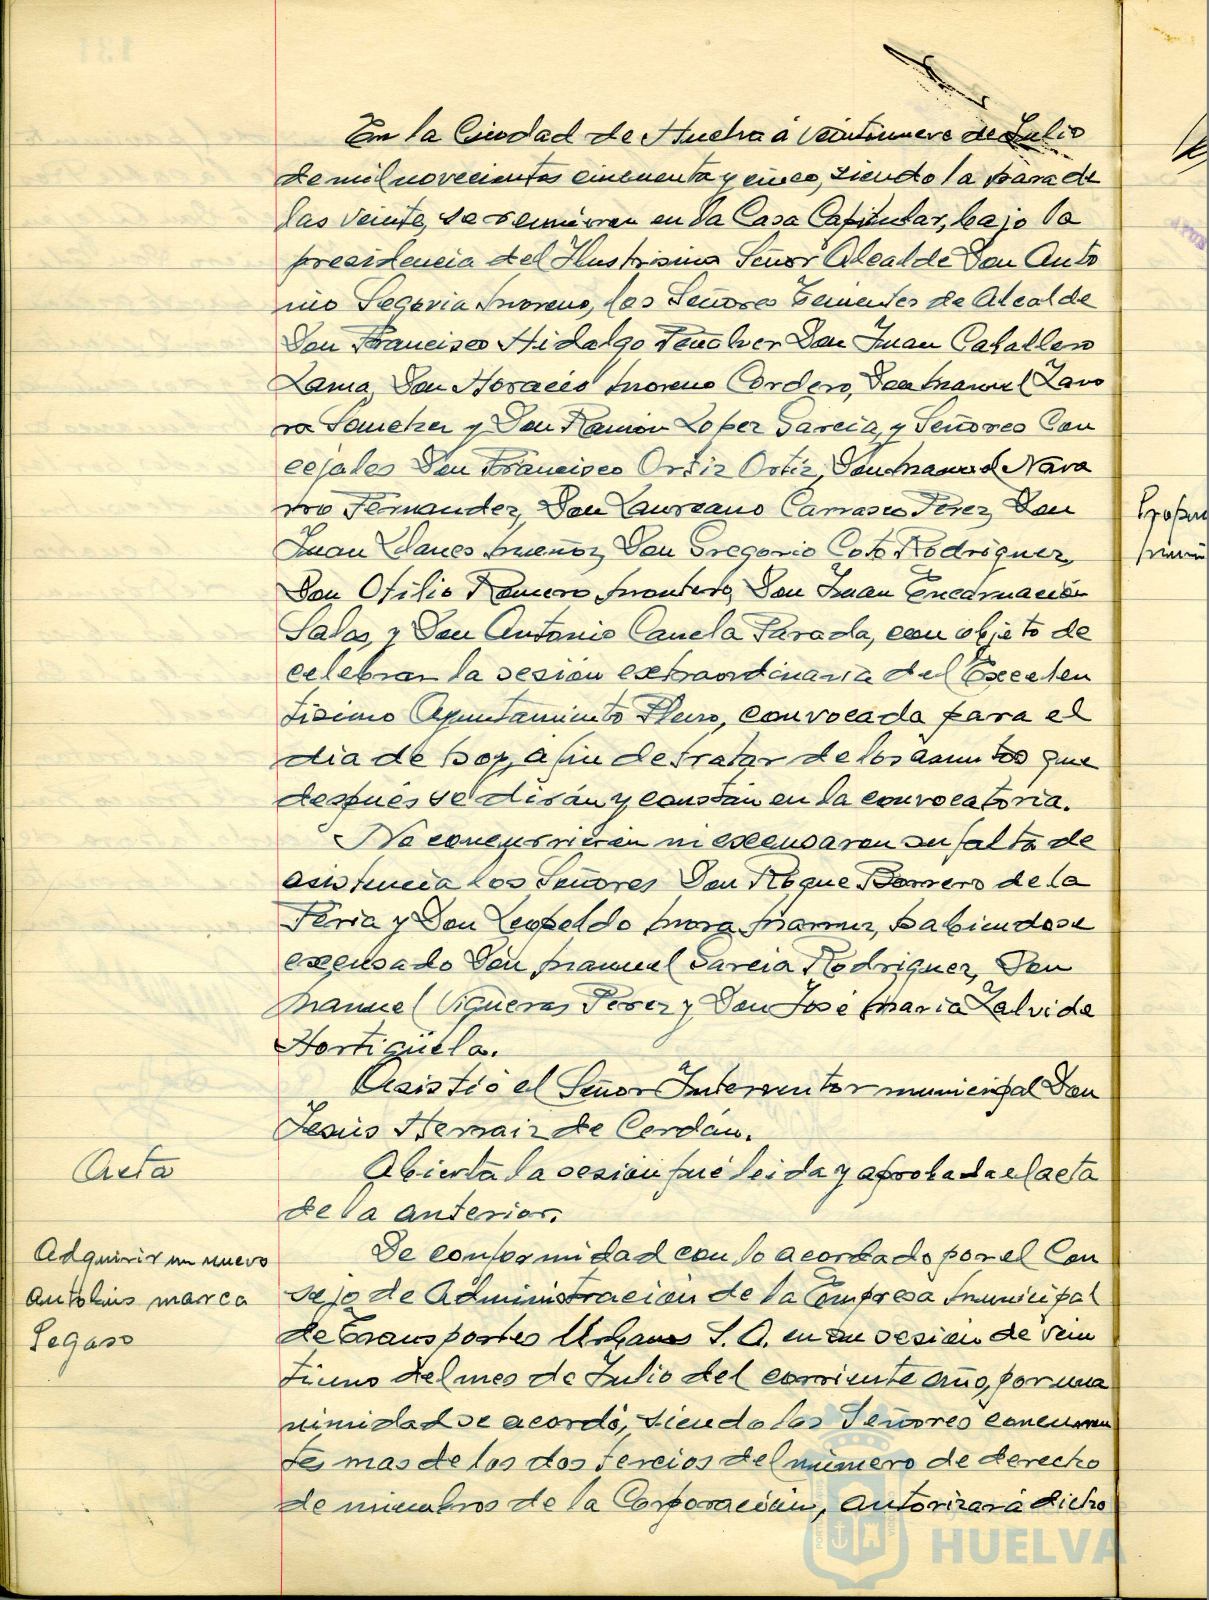 En la Ciudad de Huelva á veintinueve de Julio
de mil novecientos cincuenta y cinco, siendo la hora de
las veinte, se reunieron en la Casa Capitular, bajo la
presidencia del Ilustrisimo Señor Alcalde Don Anto
nio Segovia Moreno, los Señores Tenientes de Alcalde
Don Francisco Hidalgo Peñalver Don Juan Caballero
Lama, Don Horacio Moreno Cordero, Don Manuel Zamo
ra Sanchez y Don Ramón Lopez Garcia, y Señores Con
cejales Don Francisco Ortiz Ortiz, Don Manuel Nava
rro Fernandez, Don Laureano Carrasco Perez, Don
Juan Llanes Muñoz, Don Gregorio Coto Rodriguez,
Don Otilio Romero Montero, Don Juan Encarnación
Salas, y Don Antonio Canela Parada, con objeto de
celebrar la sesión extraordinaria del Excelen
tisimo Ayuntamiento Pleno, convocada para el
dia de hoy, a fin de tratar de los asuntos que
después se dirán y constan en la convocatoria.
No concurrieron ni excusaron su falta de
asistencia los Señores Don Roque Barrero de la
Feria y Don Leopoldo Mora, habiendose
excusado Don Manuel Garcia Rodriguez, Don
Manuel Vigueras Perez y Don José Maria Zalvide
Hortigüela.
Asistió el Señor Interventor municipal Don
Jesús Hernaiz de Cerdán.
Acta
Abierta la sesión fué leida y aprobada el acta
de la anterior.
Adquirir un nuevo
autobus marca
Pegaso
De conformidad con lo acordado por el Con
sejo de Administración de la Empresa Municipal
de Transportes Urbanos S. A. en su sesión de vein
tiuno del mes de Julio del corriente año, por una
nimidad se acordó, siendo los Señores concurren
tes mas de los dos tercios del número de derecho
de miembros de la Corporación, autorizar á dicho
HUELVA